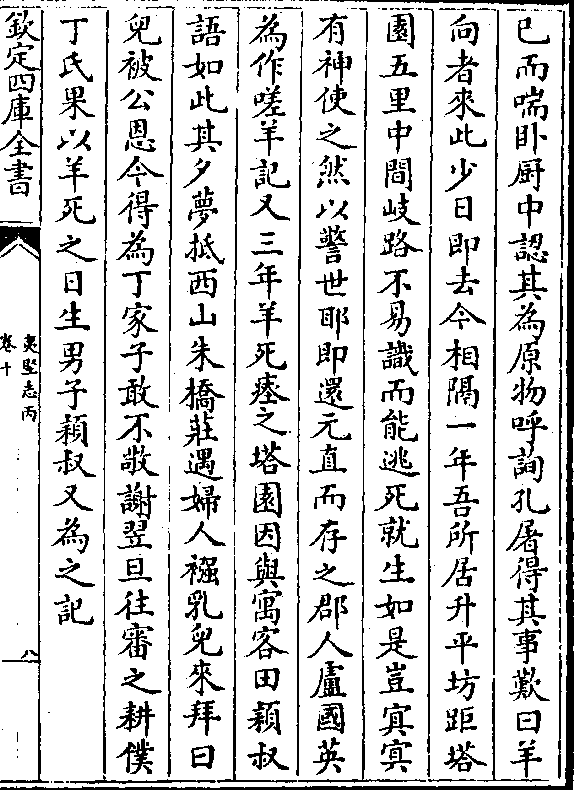 已而喘卧厨中認其為原物呼詢孔屠得其事歎曰羊
向者來此少日即去今相隔一年吾所居升平坊距塔
園五里中間岐路不易識而能逃死就生如是豈冥冥
有神使之然以警世耶即還元直而存之郡人盧國英
為作嗟羊記又三年羊死瘞之塔園因與寓客田穎叔
語如此其夕夢抵西山朱橋莊遇婦人襁乳兒來拜曰
兒被公恩今得為丁家子敢不敬謝翌旦往審之耕僕
丁氏果以羊死之日生男子穎叔又為之記
欽定四庫全書
夷堅志丙
卷十
八